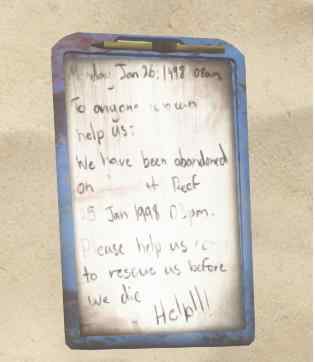 Monday Jan 26; 1998 08am.
To anyone
help us:
We have been abandoned
on Reef
25 Jan 1998 03pm.
Please help us
to rescue us before
we die
Help!!!